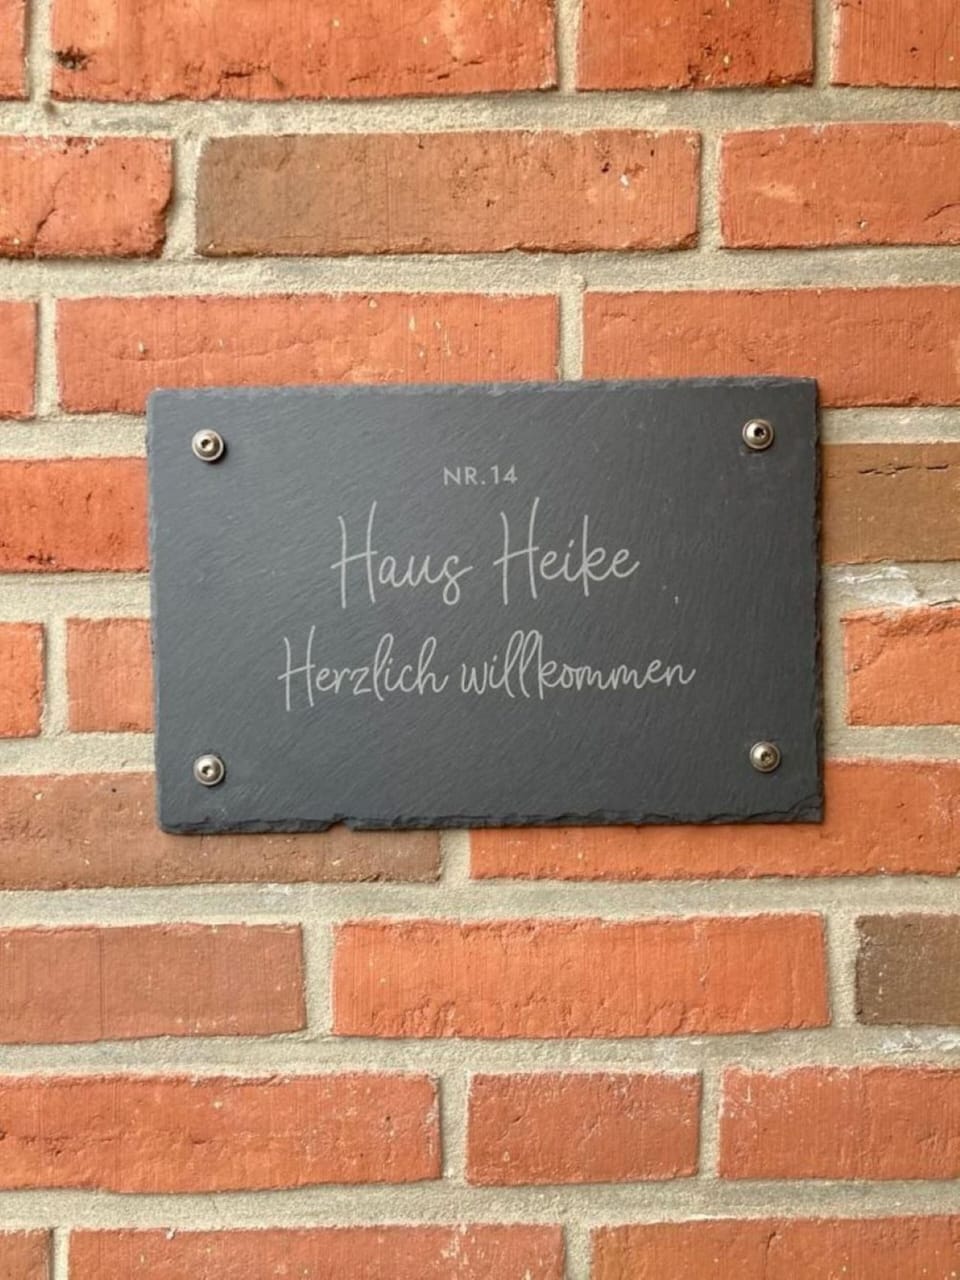 NR.14
Haus Heike
Herzlich willkommen